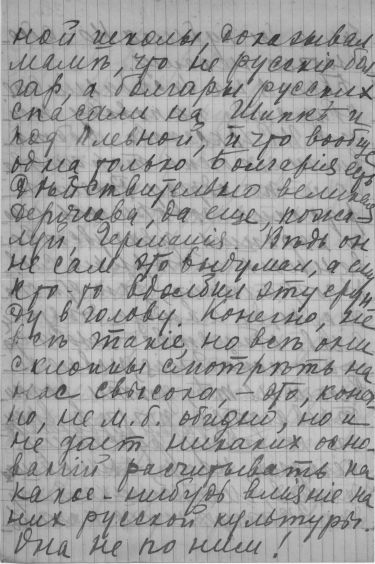 ной школы, доказывал
маме, что не русскіе бол
гар, а болгары русских
спасали на Шипкѣ и
под Плевной, и что вообще
одна только Болгарія есть
дѣйствительно великая
держава, да еще, пожа-
луй, Германія. Вѣдь он
не сам это выдумал, а ему
кто-то вдолбил эту ерун
ду в голову. Конечно, не
всѣ такіе, но всѣ они
склонны смотрѣть на
нас свысока – это, конеч
но, не м.б. обидно, но и
не дает никаких осно-
ваній расчитывать на
какое-нибудь вліяніе на
них русской культуры.
Она не по ним!